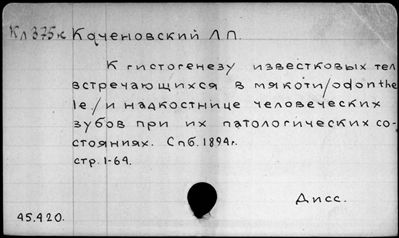 Кл 375к Каченовский Л П.
К гистогенезу известковых тел
встречающихся в мякоти/odonthe
le/ и надкостнице человеческих
зубов при их патологических со-
стояниях. Спб. 1894г.
стр. 1-64.
Дисс.
45.420.